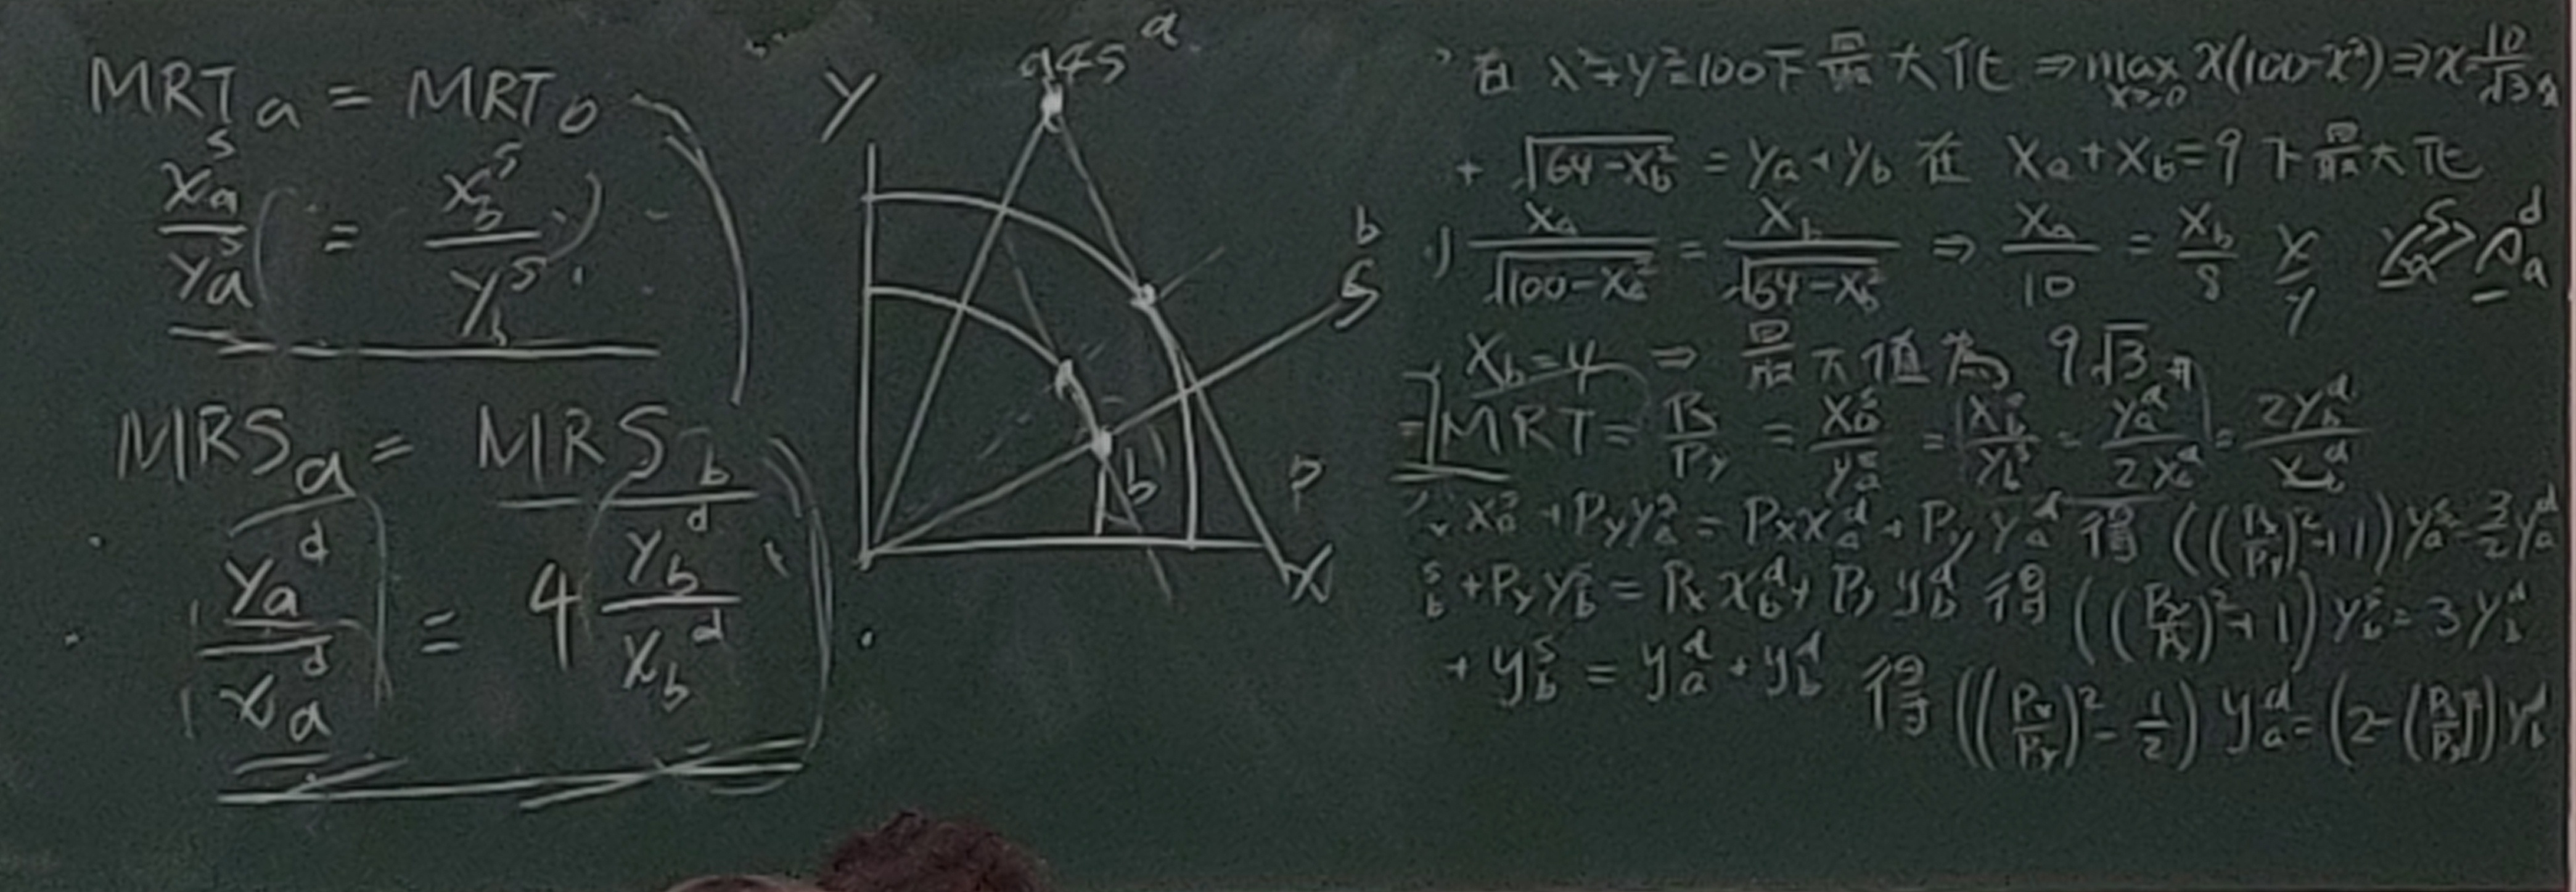 MRTa = MRTb
xa^s/ya^s = xb^s/yb^s
MRSa = MRSb
ya^d/xa^d = 4 yb^d/xb^d
Y
a
b
s
b
P
X
在 x²+y²=100下最大化 ⇒ max x≥0 x(100-x²) ⇒ x=10/√3
+ √(64-xb²) = ya+yb 在 xa+xb=9下最大化
xa/√(100-xa²) = xb/√(64-xb²) ⇒ xa/10 = xb/8
xb=4 ⇒ 最大值為 9√3
MRT = Px/Py = xa^s/ya^s = xb^s/yb^s = ya^d/2xa^d = 2yb^d/xb^d
xa^s + Pyya^s = Pxxa^d + Pyya^d 得 ((Px/Py)²+1)ya^s = 3/2 ya^d
+ Pyyb^s = Pxxb^d + Pyyb^d 得 ((Px/Py)²+1)yb^s = 3yb^d
+ yb^s = ya^d + yb^d 得 ((Px/Py)² - 1/2) ya^d = (2-(Px/Py)²)yb^d